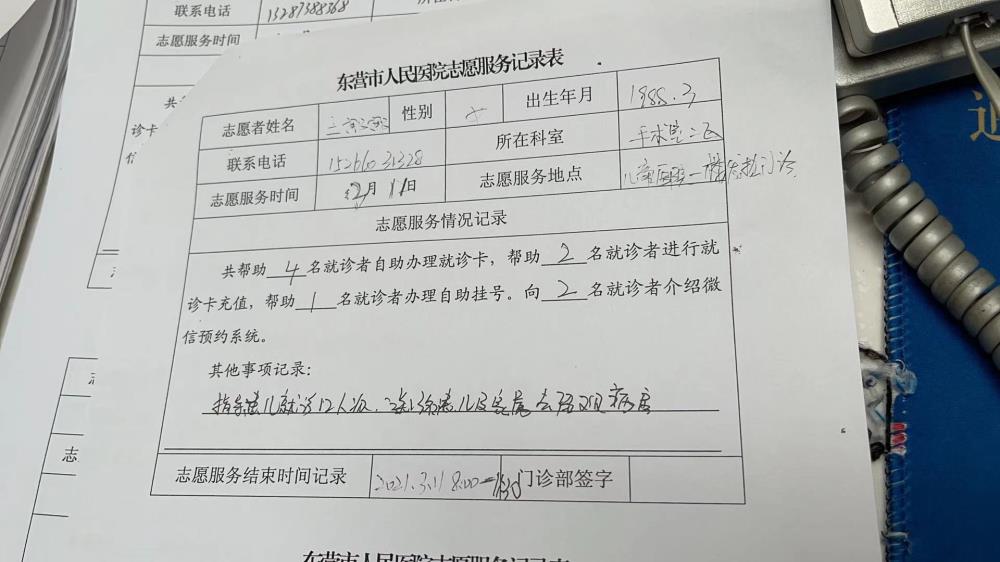 联系电话 13287388368
志愿服务时间
诊卡
东营市人民医院志愿服务记录表
志愿者姓名 性别 女 出生年月 1988.3
联系电话 15266031328 所在科室 手术室二区
志愿服务时间 月 11日 志愿服务地点 儿童医院一楼
志愿服务情况记录
共帮助 4 名就诊者自助办理就诊卡，帮助 2 名就诊者进行就
诊卡充值，帮助 1 名就诊者办理自助挂号。向 2 名就诊者介绍微
信预约系统。
其他事项记录：
指导患儿就诊12人次，患儿及家属去留观病房
志愿服务结束时间记录 2021.3.11 8:00 门诊部签字
东营市人民医院志愿服务记录表